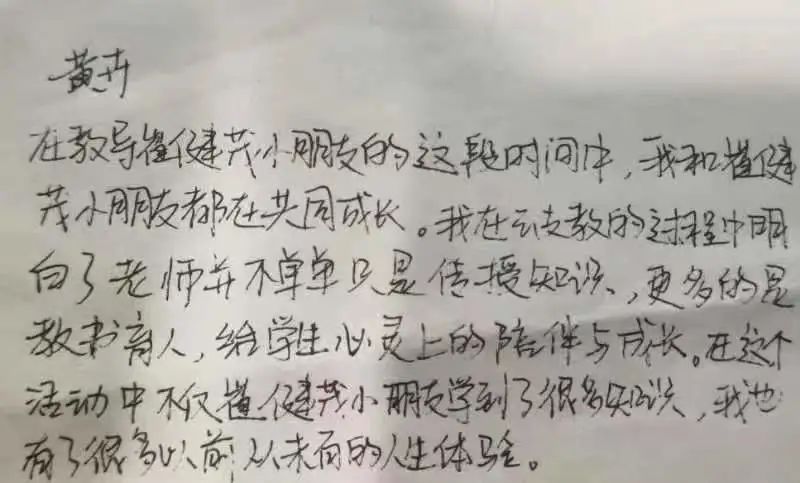 黄卉
在教导崔健茂小朋友的这段时间中,我和崔健
茂小朋友都在共同成长。我在云支教的过程中明
白了老师并不单单只是传授知识、更多的是
教书育人,给学生心灵上的陪伴与成长。在这个
活动中不仅崔健茂小朋友学到了很多知识,我也
有了很多以前从未有的人生体验。